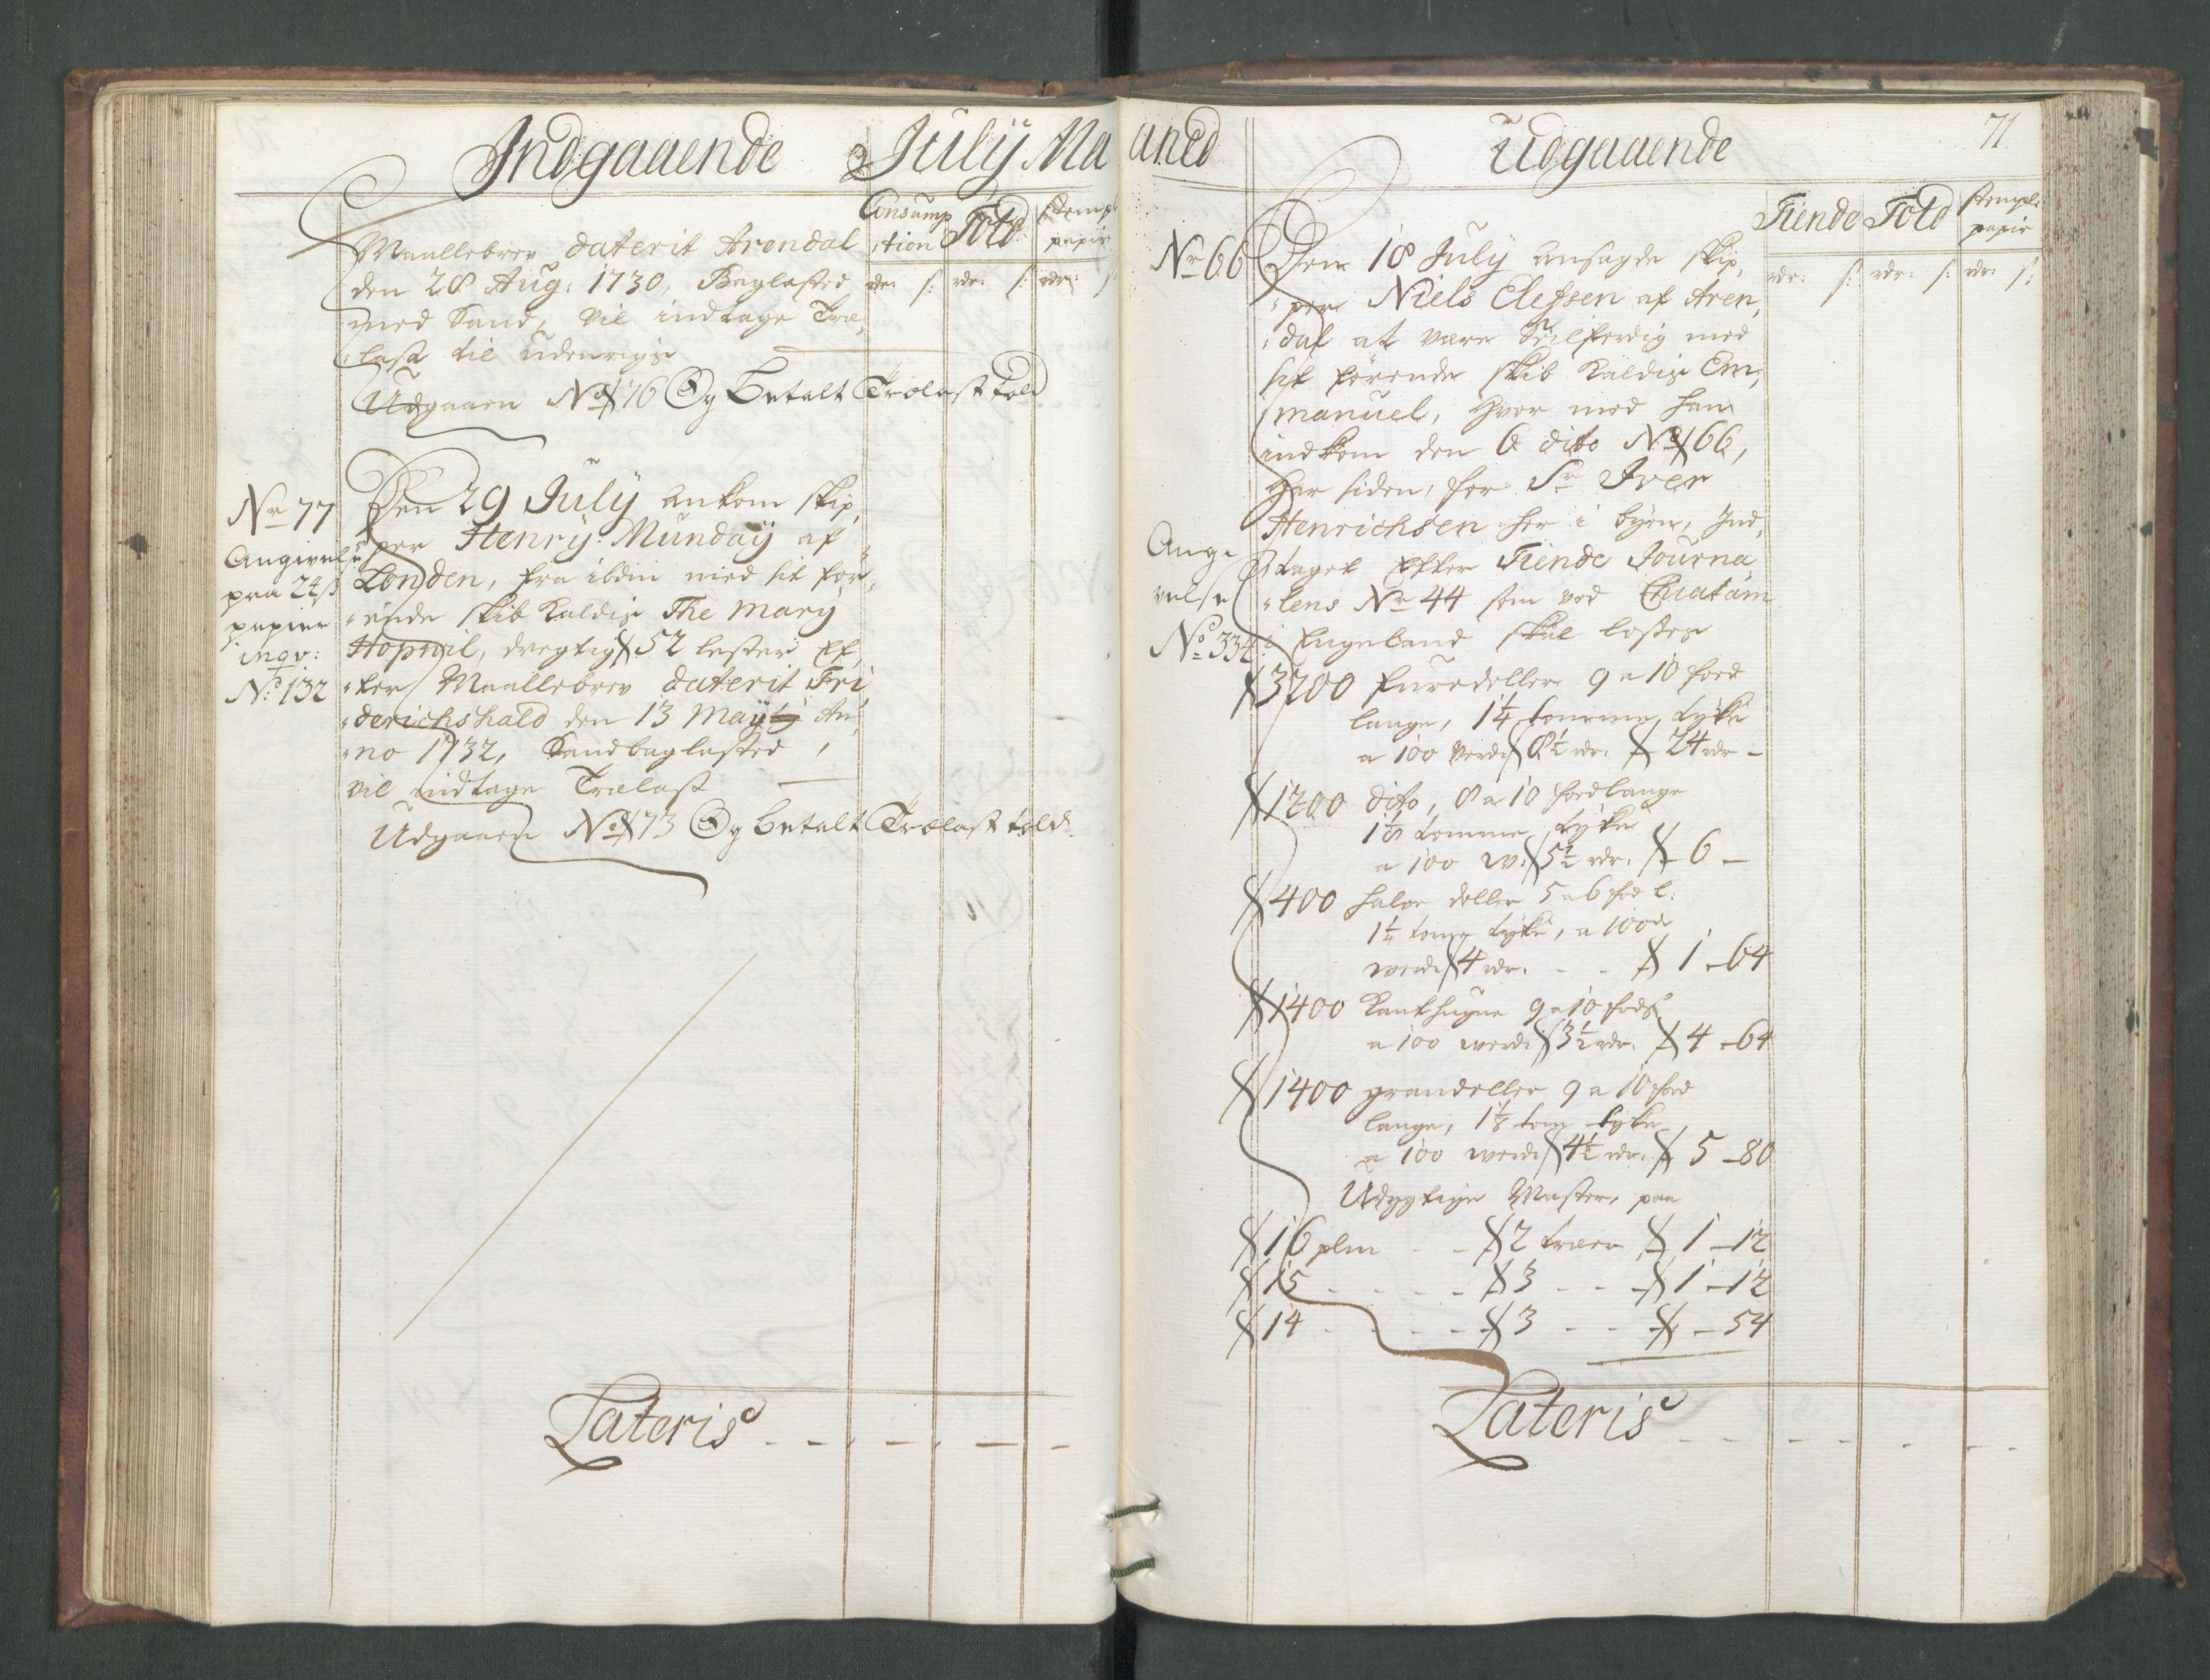 Indgaaende July Maaned
Consump
,,tion
Told
Stempl
papir
rdr: s: rdr: s: rdr: s:
Maallebrev daterit Arendal
den 28 Aug: 1730, Baglasted
med Sand, vil indtage Træ,
last til udenrigs
Udgaaen No 76 Og betalt Trælast told
Nr 77
Angivelse
paa 24 s
papier
inqv:
No 132
Den 29 July ankom skip,
per Henry Munday af
Londen, fra ibdm med sit før,
ende skib kaldis The Mary
Hopwil, drægtig 52 lester Ef,
ter Maallebrev daterit Fri
derichshald den 13 May An,
no 1732, Sandbaglasted,
vil indtage Trælast
Udgaaen No 73 Og betalt Trælast told.
Lateris
Udgaaende
71
Tiende Told Stempl:
papir
rdr: s: rdr: s: rdr: s:
Nr 66
Den 18 July ansagde skip,
per Niels Elefsen af Aren,
dal at være Seilferdig med
sit førende skib kaldis Em,
manuel, hvor med han
indkom den 6 dito No 66,
Har siden, for Sr Iver
Henrichsen her i byen, Ind,
taget Efter Tiende Journa
lens Nr 44 som ved Chatam
i Engeland skal losses
Angi
velse
No 334
3200 furedeller 9 a 10 foed
lange, 1¼ tomme tyke
a 100 verdi 8½ rdr. 24 rdr -
1200 dito, 8 a 10 foed lange
1⅛ tomme tyke
a 100 w: 5½ rdr. 6 -
400 halve deller 5 a 6 foed l:
1¼ tome tyke, a 100de
werdi 4 rdr. - - 1 - 64
1400 Kanthugne 9 a 10 fods
a 100 werdi 3½ rdr. 4 - 64
1400 grandeller 9 a 10 foed
lange, 1⅛ tom tyke
a 100 werdi 4½ rdr. 5 - 80
Udygtige Master, paa
16 plm - - 2 træer 1 - 12
15 - - - - 3 - - - 1 - 12
14 - - - - 3 - - - - 54
Lateris